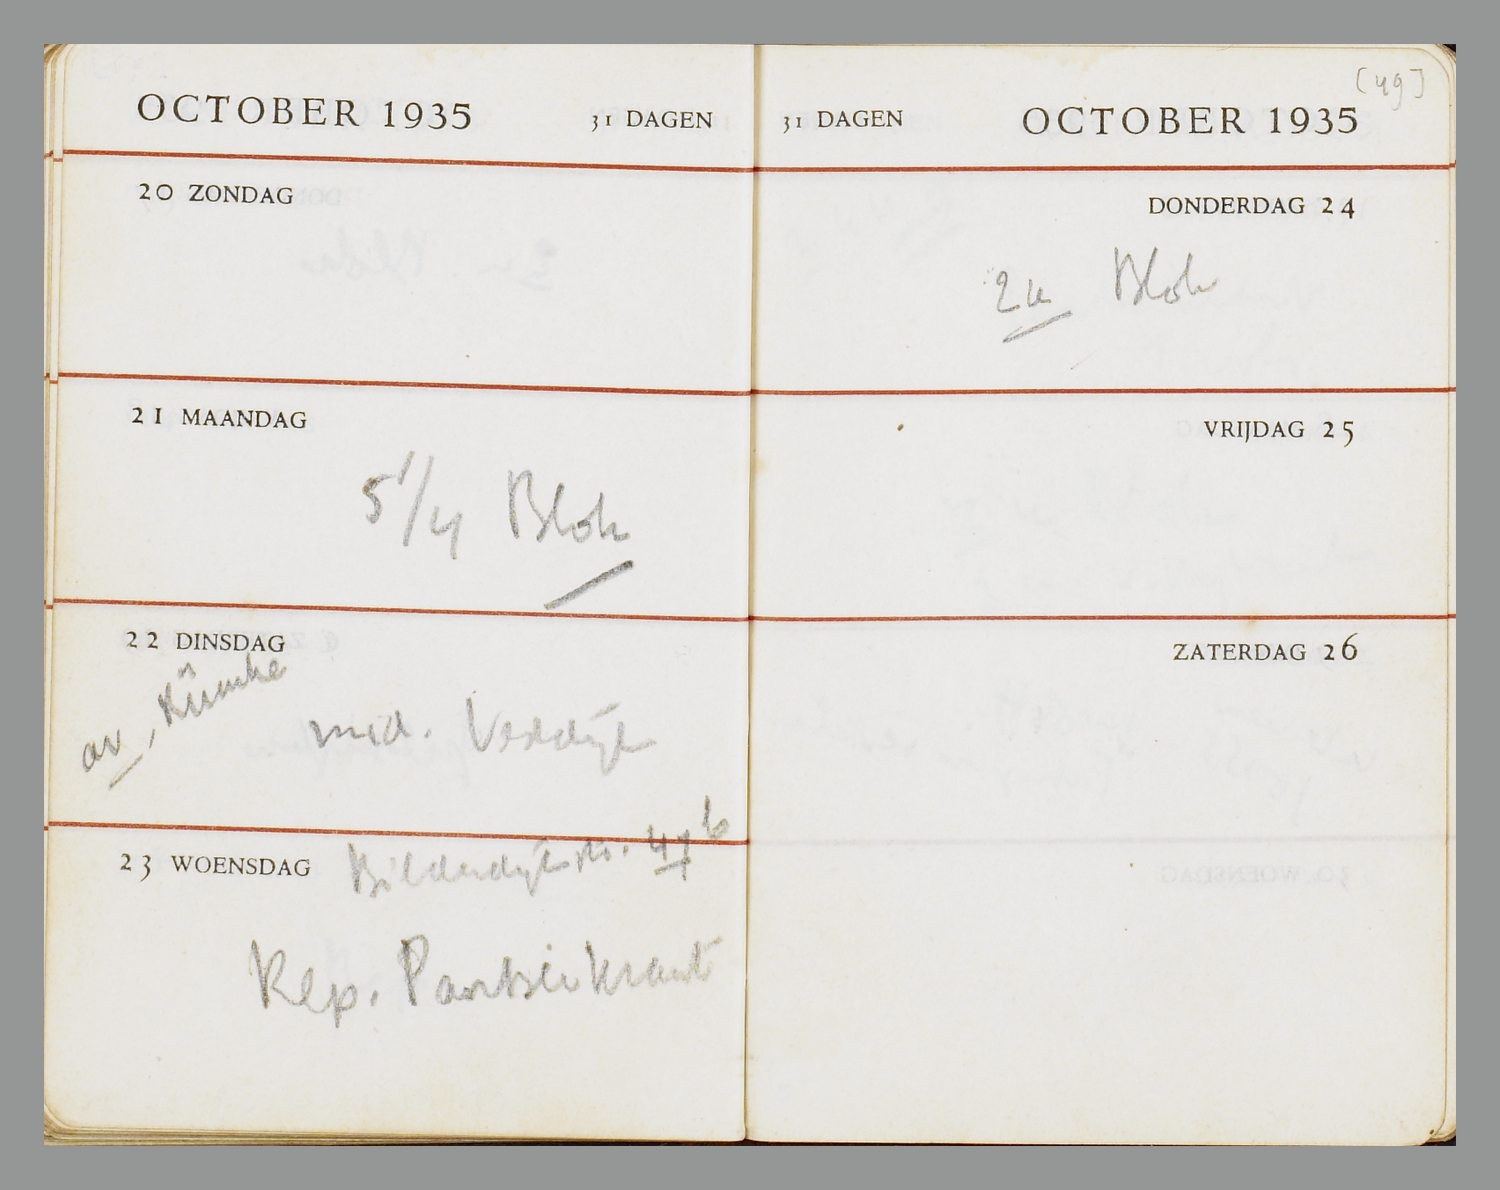 OCTOBER 1935 31 DAGEN
20 ZONDAG
21 MAANDAG
5 1/4 Blok
22 DINSDAG
av, Rümke
mid. Verdijk
23 WOENSDAG
Bilderdijkstr. 47 b
Rep.
[49]
31 DAGEN OCTOBER 1935
DONDERDAG 24
2u Blok
VRIJDAG 25
ZATERDAG 26